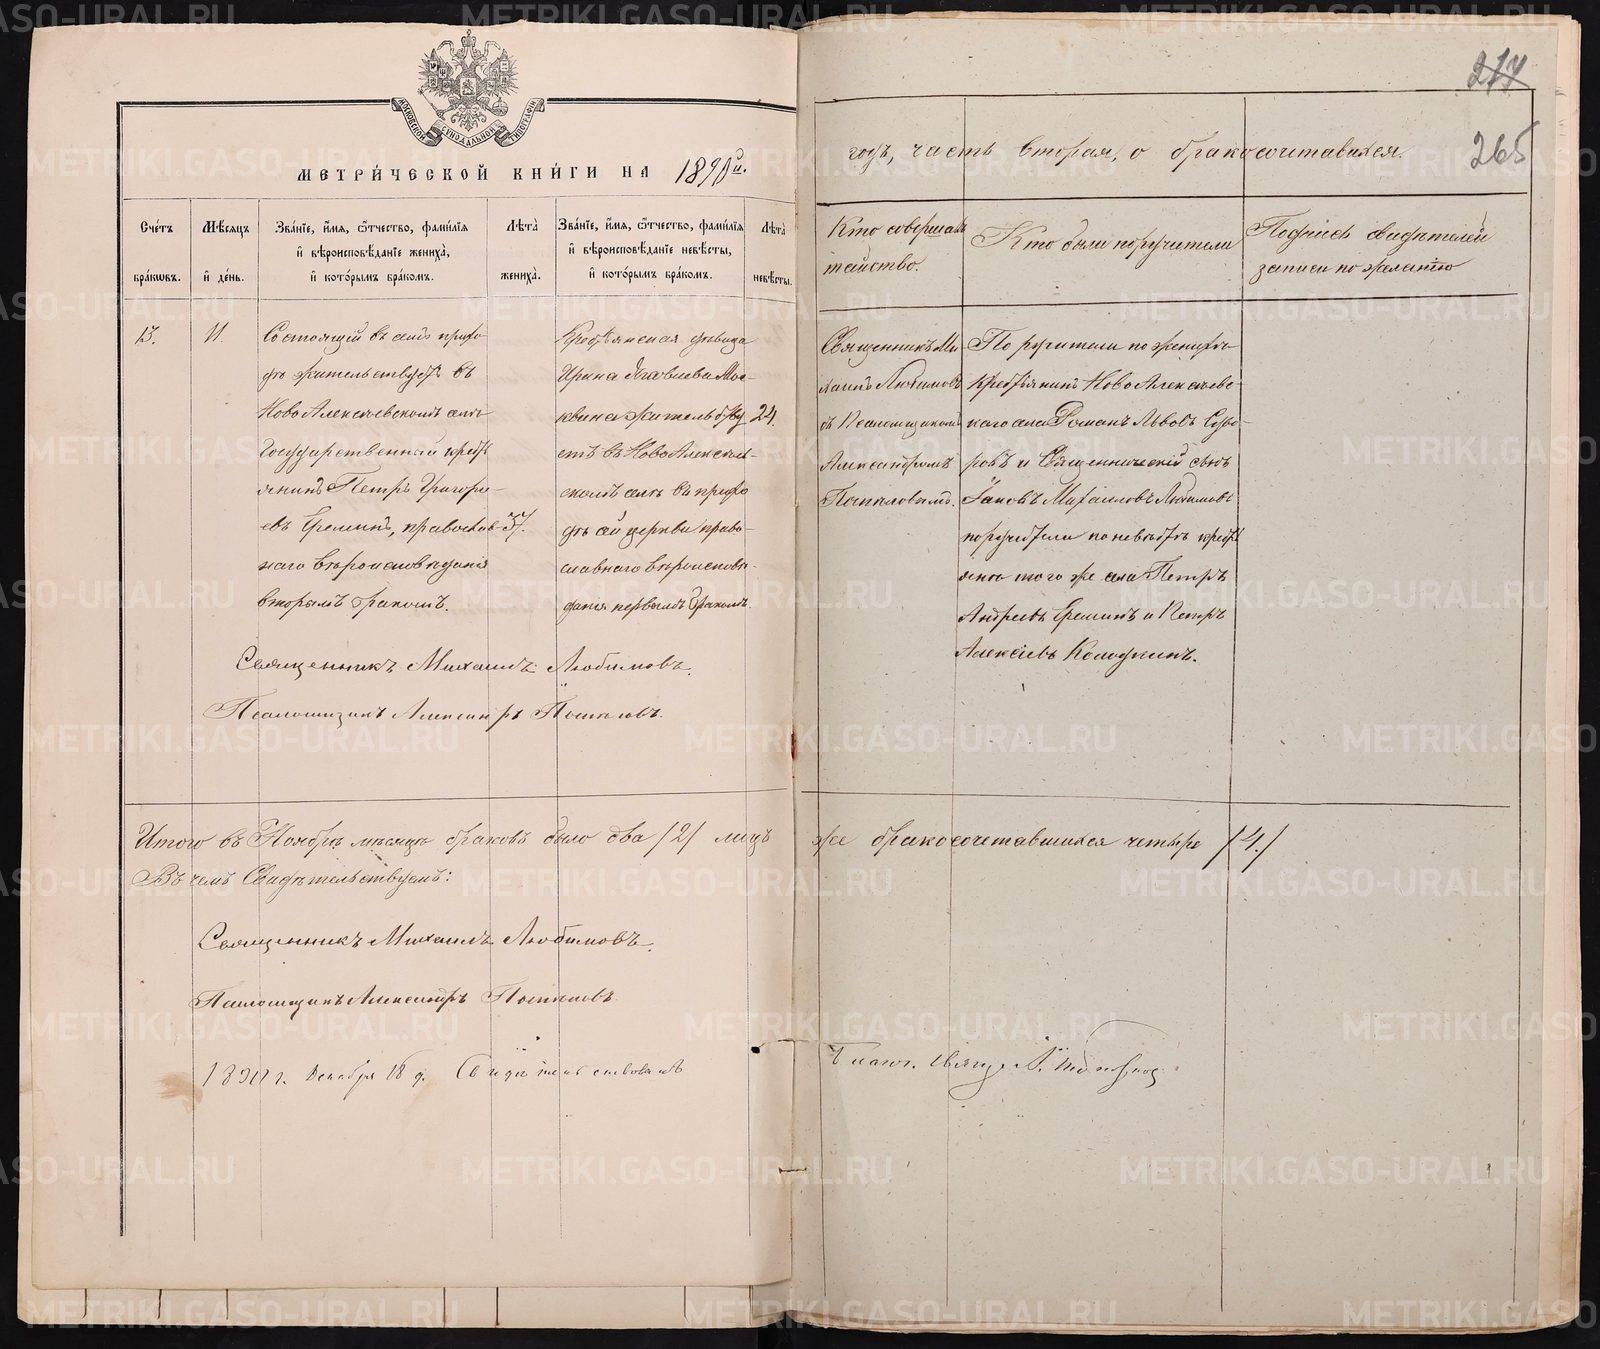 МОСКОВСКОЙ СУНОДАЛЬНОЙ ТИПОГРАФІИ
МЕТРИ́ЧЕСКОЙ КНИ́ГИ НА 1890й.
годъ, часть вторая, о бракосочетавшихся.
277
265
Сче́тъ бра́кѡвъ.
Мѣ́сяцъ и҆ де́нь.
Зва́нїе, и҆́мя, ѻ҆́тчество, фами́лїя
и҆ вѣроисповѣ́данїе жениха̀,
и҆ кото́рымъ бра́комъ.
Лѣта̀ жениха̀.
Зва́нїе, и҆́мя, ѻ҆́тчество, фами́лїя
и҆ вѣроисповѣ́данїе невѣ́сты,
и҆ кото́рымъ бра́комъ.
Лѣта̀ невѣ́сты.
Кто совершалъ
таинство.
Кто были поручители
Подпись свидѣтелей
записи по желанію
13.
11.
Состоящій въ семъ прихо-
дѣ жительствующ въ
НовоАлексѣевскомъ селѣ
Государственный крест
янинъ Петръ Григорі-
евъ Ереминъ, православ-
наго вѣроисповѣданія
вторымъ бракомъ.
37.
Крестьянская дѣвица
Ирина Яковлева Мос-
квина жительству
етъ въ НовоАлексѣев-
скомъ селѣ въ прихо
дѣ сей церкви право-
славнаго вѣроисповѣ-
данія первымъ бракомъ.
24.
Священникъ Ми
хаилъ Любимовъ
съ Псаломщикомъ
Александромъ
По ручители по женихѣ
Крестьянинъ НовоАлексѣевс-
каго села Романъ Львовъ Суво-
ровъ и Священническій сынъ
Іаковъ Михаиловъ Любимовъ
поручители по невѣстѣ крест
яне того же села Петръ
Андреевъ Ереминъ и Петръ
Алексѣевъ Колодкинъ.
Священникъ Михаилъ Любимовъ.
Псаломщикъ Александръ
Итого въ Ноябрѣ мѣсяцѣ браковъ было два /2/ лицъ же бракосочетавшихся четыре /4./
Въ чемъ Свидѣтельствуемъ:
Священникъ Михаилъ Любимовъ.
Псаломщикъ Александръ
1890 г. Декабря 18 д. Свидѣтельствовалъ
Благоч. Свящ.
METRIKI.GASO-URAL.RU